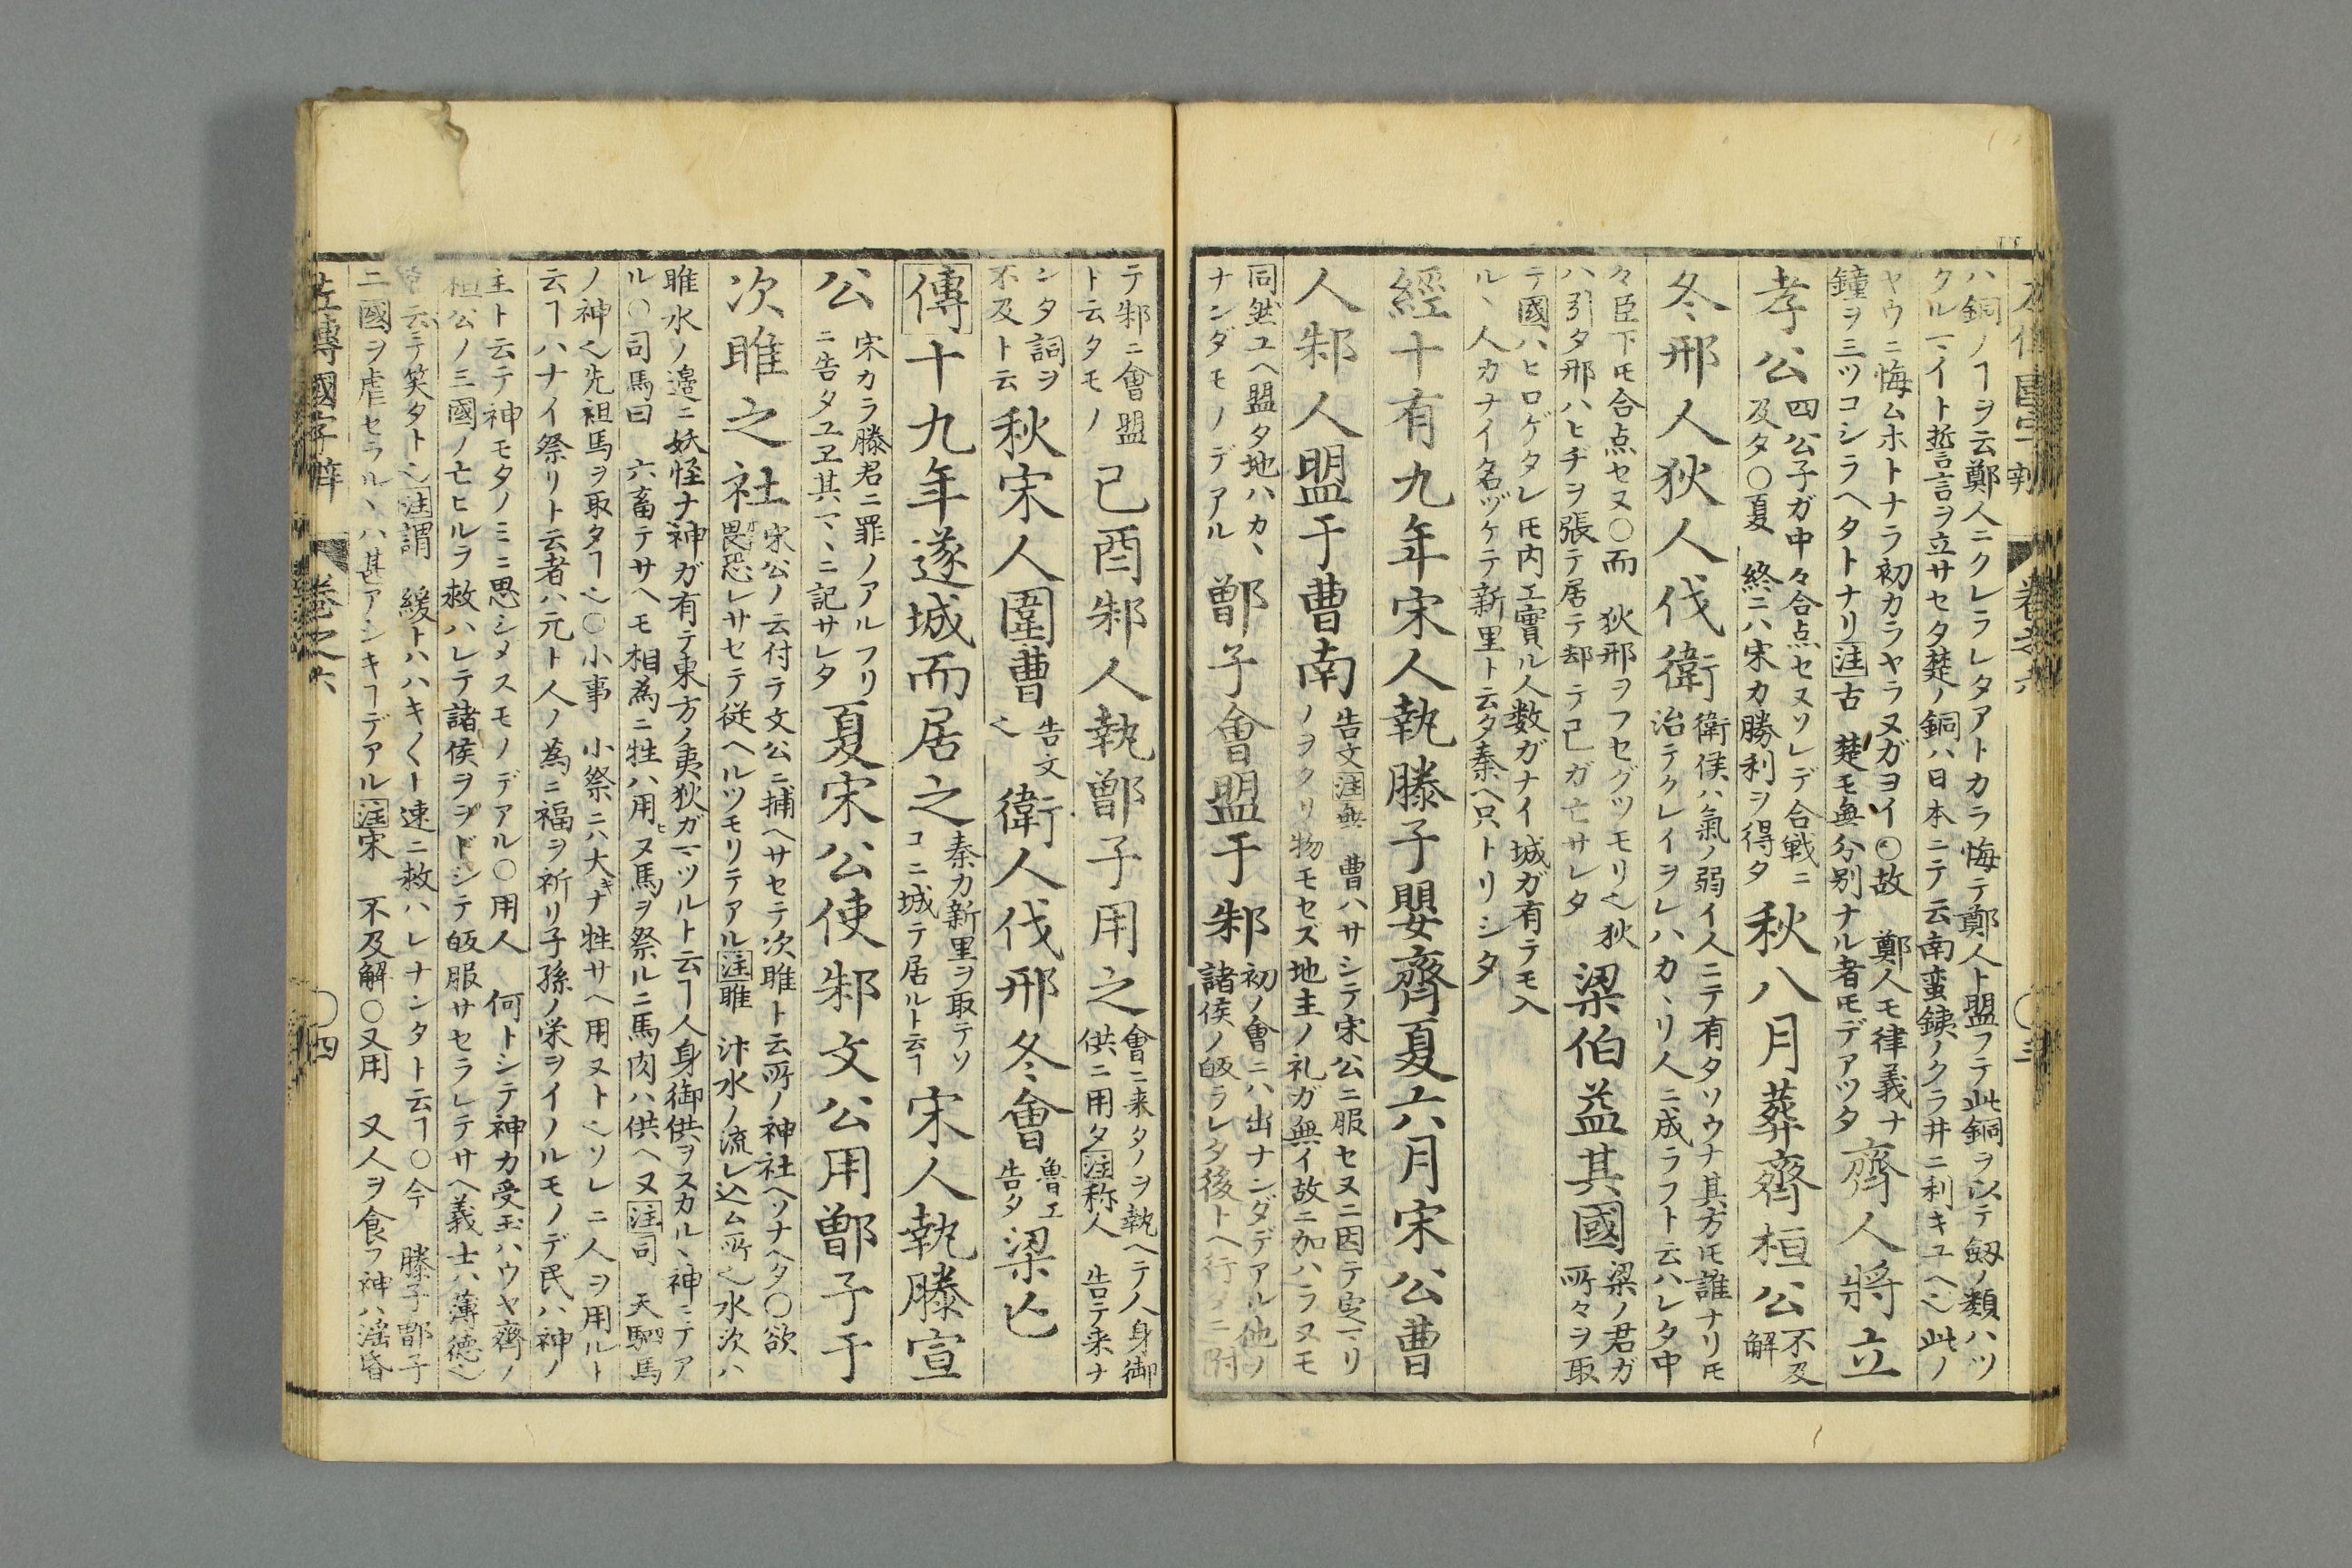 ハ銅ノヿヲ云鄭人ニクレラレタアトカラ悔テ鄭人ト盟フテ此銅ヲ以テ劔ノ類ハツ
クル
イト誓言ヲ立サセタ楚ノ銅ハ日本ニテ云南蛮銕ノクラ井ニ利キユヘ
此ノ
ヤウニ悔ムホトナラ初カラヤラヌガヨイ〇故 鄭人モ律義ナ
鐘ヲ三ツコシラヘタトナリ注古 楚モ無分別ナル者モデアツタ
齊人將立
孝公
四公子ガ中々合点セヌソレデ合戦ニ
及タ〇夏 終ニハ宋カ勝利ヲ得タ
秋八月葬齊桓公
不及
解
冬邢人狄人伐衛
衛侯ハ氣ノ弱イ人ニテ有タソウナ其方㐧誰ナリ㐧
治テクレイヲレハカヽリ人ニ成ラフト云ハレタ中
々臣下㐧合点セヌ〇而 狄邢ヲフセグツモリ也狄
ハ引タ邢ハヒヂヲ張テ居テ却テ己ガ亡サレタ
梁伯益其國
梁ノ君ガ
所々ヲ取
テ國ハヒロゲタレ㐧内エ實ル人数ガナイ城ガ有テモ入
ルヽ人カナイ名ヅケテ新里ト云タ秦ヘ只トリシタ
經十有九年宋人執滕子嬰齊夏六月宋公曹
人邾人盟于曹南
告文注無 曹ハサシテ宋公ニ服セヌニ因テ定マリ
ノヲクリ物モセズ地主ノ礼ガ無イ故ニ加ハラヌモ
同然ユヘ盟タ地ハカヽ
ナンダモノデアル
鄫子會盟于邾
初ノ會ニハ出ナンダデアル他ノ
諸侯ノ皈ラレタ後トヘ行
テ邾ニ會盟
ト云タモノ
己酉邾人執鄫子用之
會ニ来タノヲ執ヘテ人身御
供ニ用タ注称人 告テ来ナ
ンタ詞ヲ
不及ト云
秋宋人圍曹
告文
也
衛人伐邢冬會
魯エ
告タ
梁亡
傳十九年遂城而居之
秦カ新里ヲ取テソ
コニ城テ居ルト云ヿ
宋人執滕宣
公
宋カラ滕君ニ罪ノアルフリ
ニ告タユヱ其マヽニ記サレタ
夏宋公使邾文公用鄫子于
次睢之社
宋公ノ云付テ文公ニ捕ヘサセテ次睢ト云所ノ神社ヘソナヘタ〇欲
畏恐レサセテ従ヘルツモリテアル注睢 汴水ノ流レ込ム所也水次ハ
睢水ノ邉ニ妖怪ナ神ガ有テ東方ノ夷狄ガマツルト云ヿ人身御供ヲスカルヽ神ニテア
ル〇司馬曰 六畜テサヘモ相為ニ牲ハ用ヒヌ馬ヲ祭ルニ馬肉ハ供ヘヌ注司 天駟馬
ノ神也先祖馬ヲ取タヿ也〇小事 小祭ニハ大キナ牲サヘ用ヌト也ソレニ人ヲ用ルト
云ヿハナイ祭リト云者ハ元ト人ノ為ニ福ヲ祈リ子孫ノ栄ヲイノルモノデ民ハ神ノ
主ト云テ神モタノミニ思シメスモノデアル〇用人 何トシテ神カ受玉ハウヤ齊ノ
桓公ノ三國ノ亡ヒルヲ救ハレテ諸侯ヲヲドシテ皈服サセラレテサヘ義士ハ薄徳也
云テ笑タト也注謂 緩トハハキ〱ト速ニ救ハレナンタト云ヿ〇今 滕子鄫子
二國ヲ虐セラルヽハ甚アシキヿデアル注宋 不及解〇又用 又人ヲ食フ神ハ淫昏
左傳國字辯 卷之六 〇四